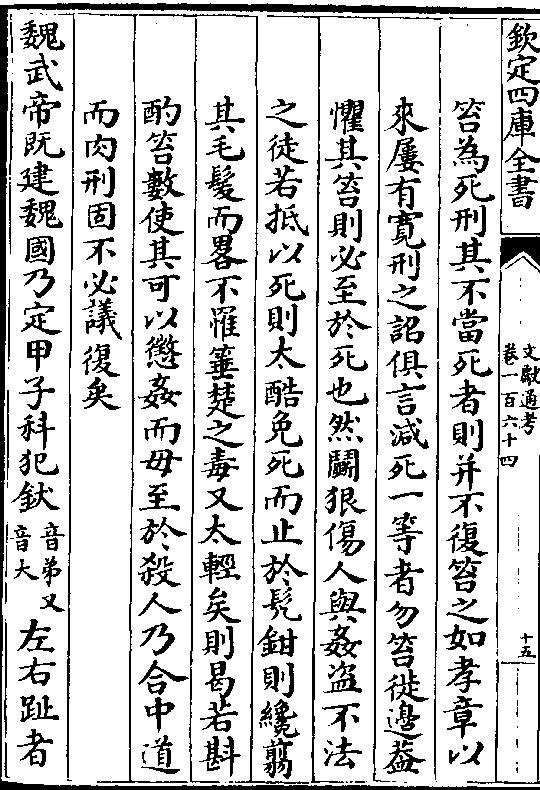 欽定四庫全書
文獻通考
卷一百六十四
十五
笞為死刑其不當死者則并不復笞之如孝章以
來屢有寛刑之詔俱言減死一等者勿笞徙邊葢
懼其笞則必至於死也然鬬狠傷人與姦盗不法
之徒若抵以死則太酷免死而止於髠鉗則纔翦
其毛髮而畧不罹箠楚之毒又太輕矣則曷若斟
酌笞數使其可以懲姦而毋至於殺人乃合中道
而肉刑固不必議復矣
魏武帝既建魏國乃定甲子科犯釱音弟又音大左右趾者